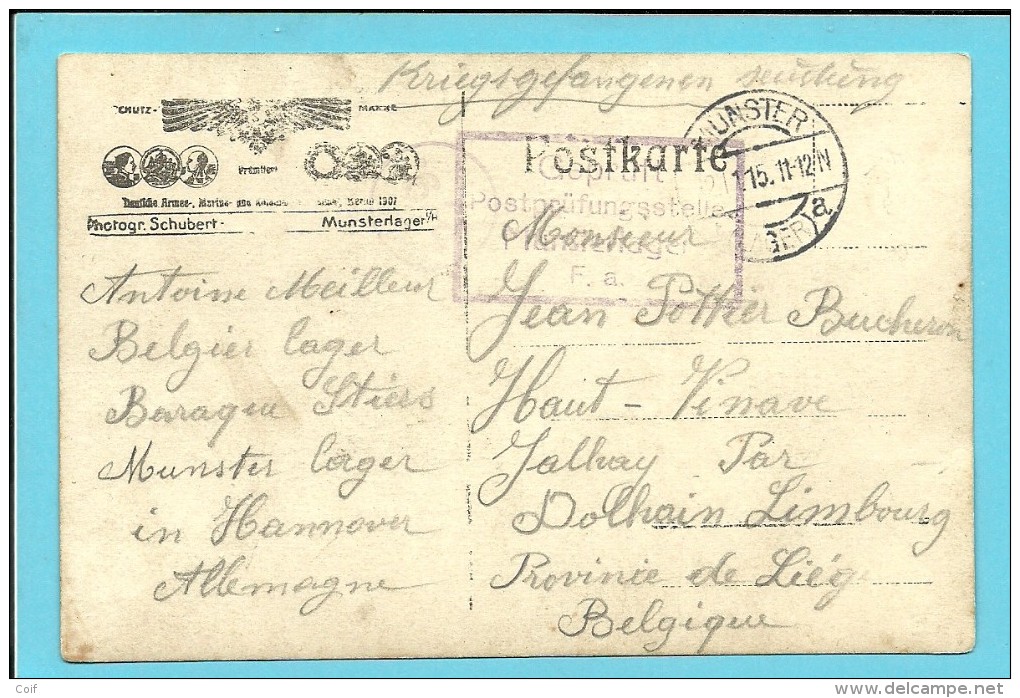 Kriegsgefangenen sendung
SCHUTZ- MARKE
Prämiiert
Deutsche Armee-, Marine- und Berlin 1907
Photogr. Schubert - Munsterlager i/H
Postkarte
MUNSTER
15. 11-12 N
(LAGER) a
Geprüft
Postprüfungsstelle
F. a.
Antoine Meilleur
Belgier lager
Baraque
Munster lager
in Hannover
Allemagne
Monsieur
Jean Pottier Bucheron
Haut - Vinave
Jalhay Par
Dolhain Limbourg
Provinie de Liége
Belgique
Coif
www.delcampe.net